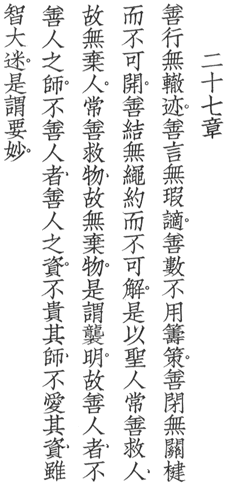 二十七章
善行無轍迹。善言無瑕謫。善數不用籌策。善閉無關楗
而不可開。善結無繩約而不可解。是以聖人常善救人、
故無棄人。常善救物、故無棄物。是謂襲明。故善人者、不
善人之師。不善人者、善人之資。不貴其師、不愛其資、雖
智大迷。是謂要妙。